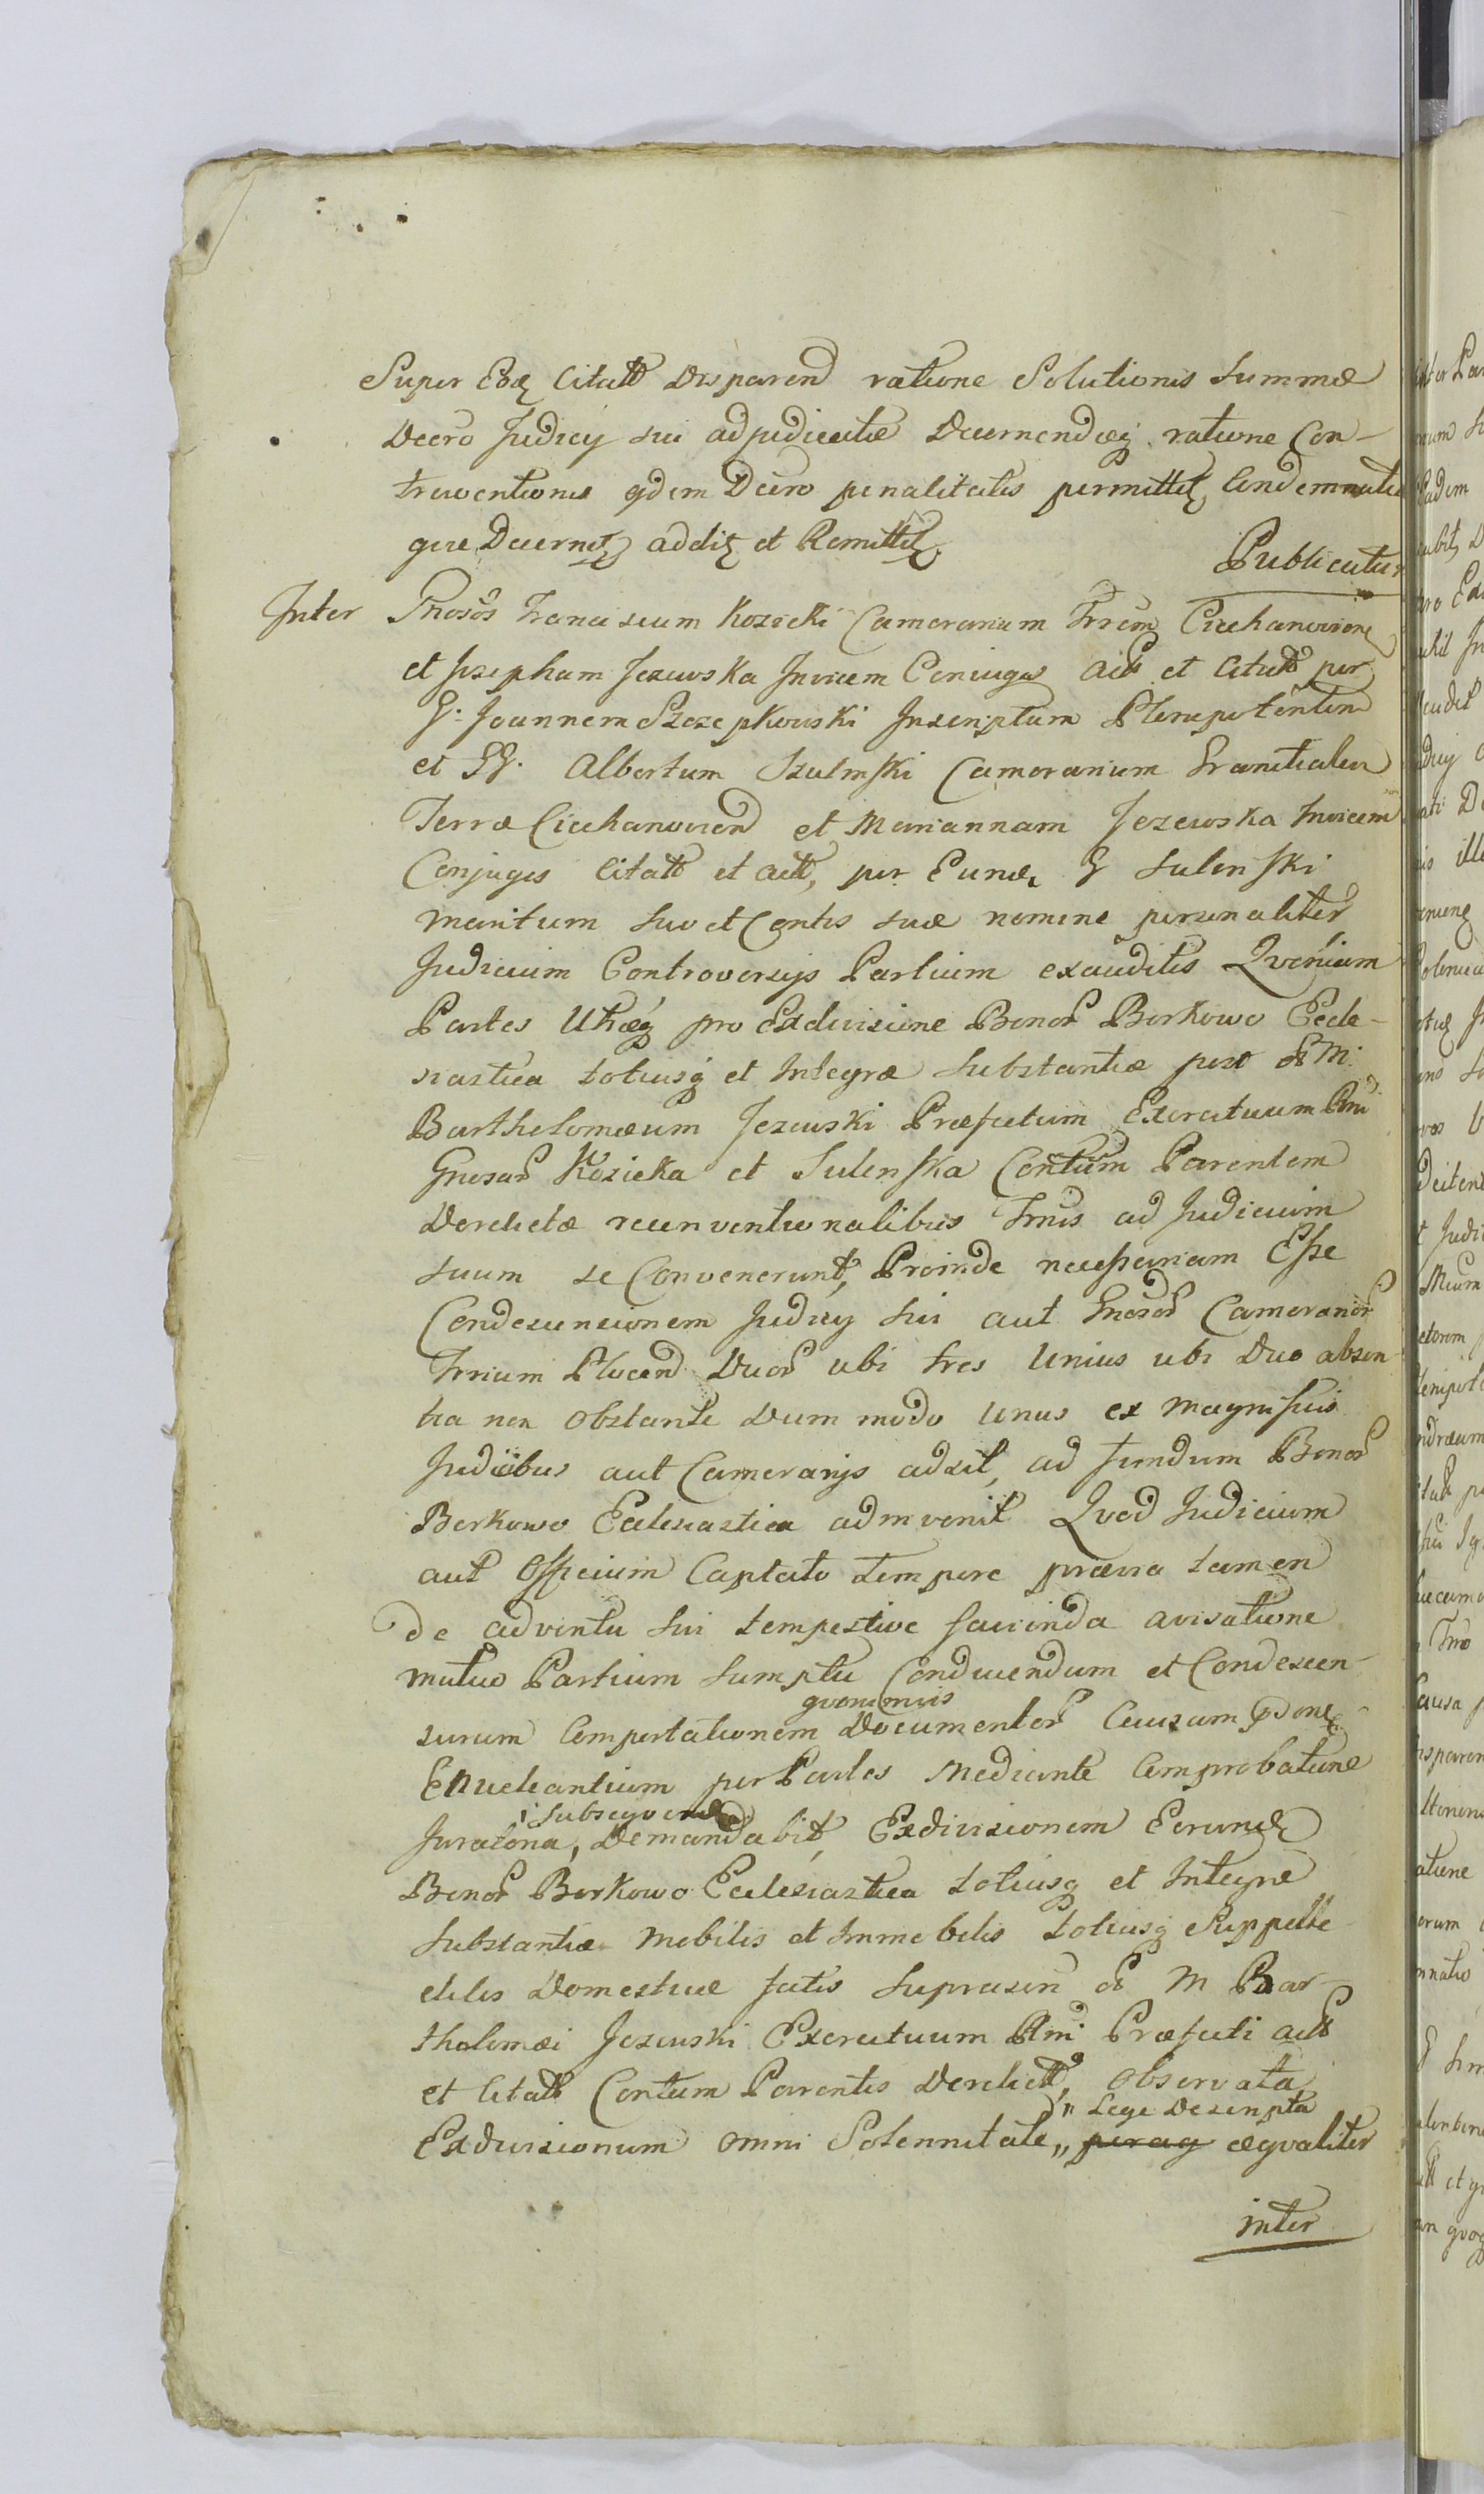 Super Eog Citatt disparend ratione Solutionis Summæ
Decro Judicy sui adjudicatæ Decernendæq ratione Con-
traventionis qdem Decro penalitatis permittet, Condemnatio
que Decernet, addit et Remittit
Publicatur
Inter Gnosos Franciscum Kozicki Camerarium Trrem Ciechanovien
et Josepham Jezewska Invicem Coniuges act et citatt per
G. Joannem Szczepkowski Inscriptum Plenipotentem
et GG. Albertum Szulinski Camerarium Granitialem
Terræ Ciechanovien et Mariannam Jezewska Invicem
Conjuges Citatt et actt, per Eund G Sulenski
maritum suo et Contis suæ nomine personaliter
Judicium Controversijs Partium exauditis Qvoniam
Partes Utræq pro Exdivisione Bonor Borkowo Eccle-
siastica totiusq et Integræ Substantiæ post ol M.
Bartholomæum Jezewski Præfectum Exercituum Rni
Gnosar Kozicka et Sulenska Contium Parentem
Derelictæ reconventionalibus Trnis ad Judicium
suum se Convenerunt, Proinde necessariam Esse
Condescensionem Judicy sui aut Gnosor Cameranior
Trrium Plocen Duor ubi tres Unius ubi Duo absen-
tia non obstante dum modo unus ex Magnificis
Judicibus aut Camerarijs adsit, ad fundum Bonor
Borkowo Ecclesiastica adinvenit Qvod Judicium
aut Officium Captato tempore prævia tamen
de adventu sui tempestive facienda avisatione
mutuo Partium sumptu Conducendum et Condescen-
qvorumvis
surum Comportationem Documentor Causam
Enucleantium per Partes Mediante Comprobatione
subseqvend
Juratoria, Demandabit, Exdivisionem Eorund
Bonor Borkowo Ecclesiastica totiusq et Integræ
Substantiæ Mobilis et Immobilis totiusq Suppelle
ctilis Domesticæ fatis suprascri ol M Bar-
tholomæi Jezewski Exercituum Rni Præfecti actt
et Citatt Contum Parentis Derelictt, observata
" Lege Descripta
Exdivisionum omni Solennitate „ perag æqvaliter
inter